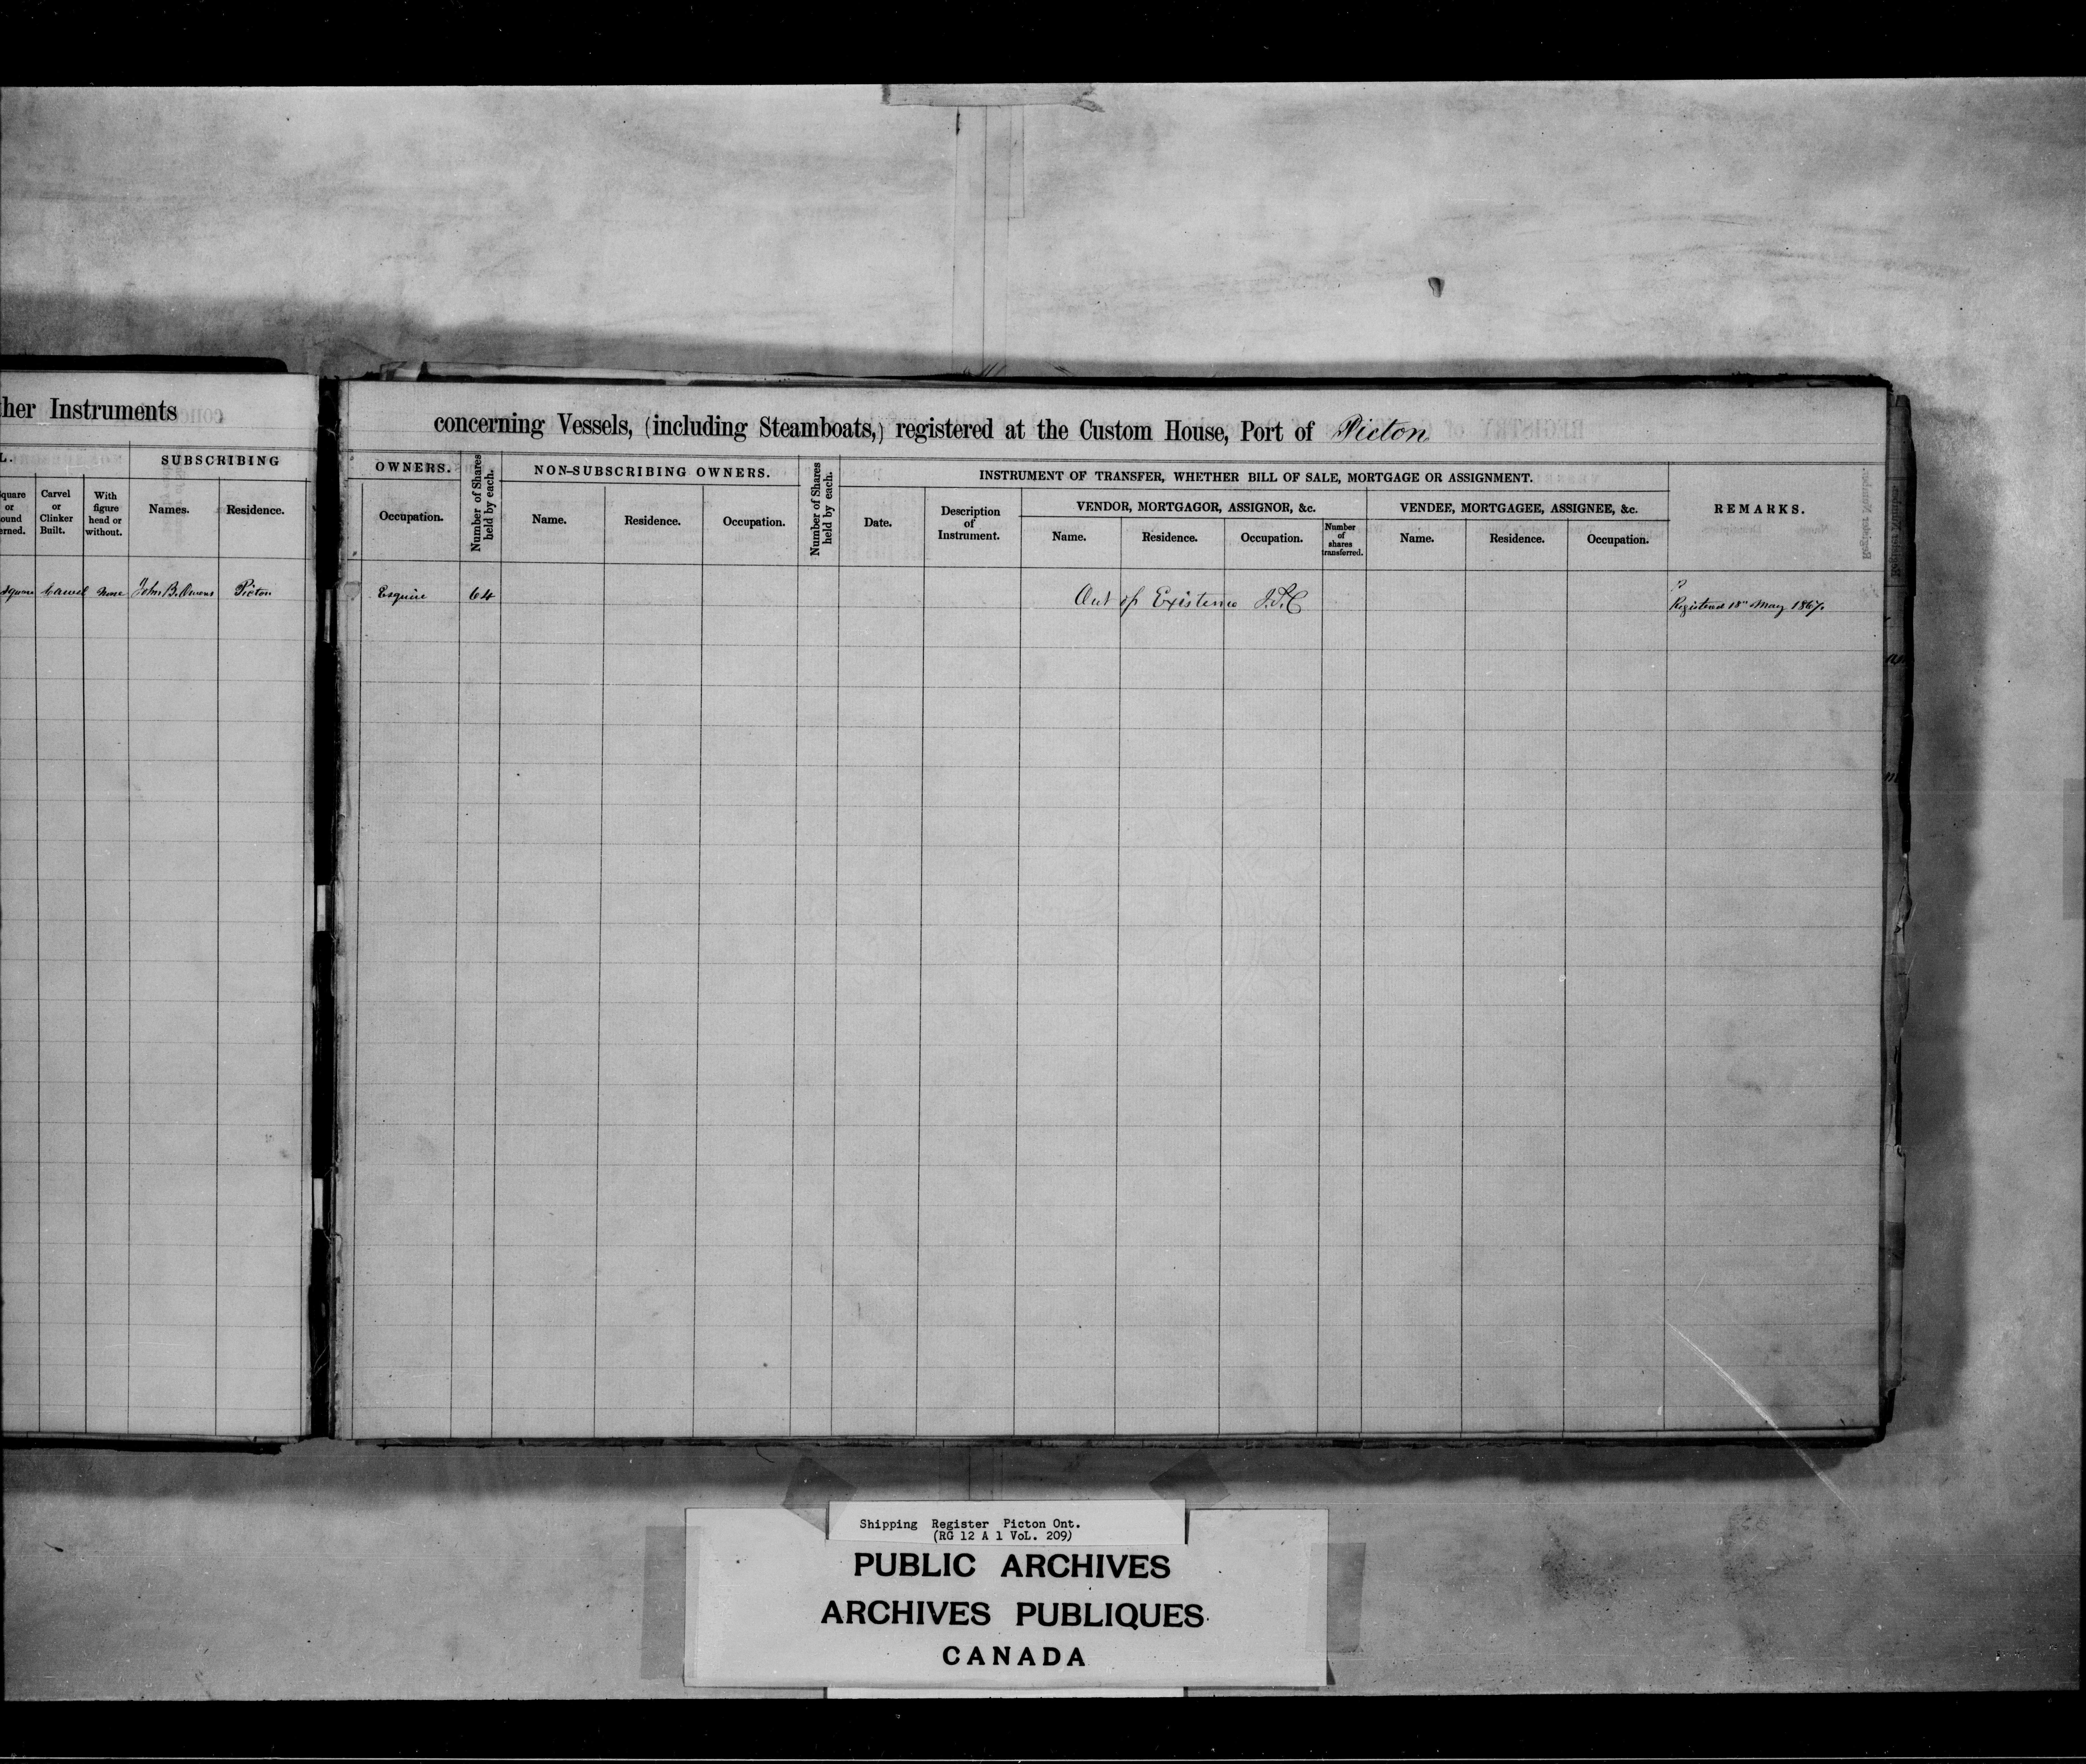 ther Instruments
L.
SUBSCRIBING
quare or ound erned.
Carvel or Clinker Built.
With figure head or without.
Names.
Residence.
Square Carvel None John B. Owens Picton
concerning Vessels, (including Steamboats,) registered at the Custom House, Port of Picton
OWNERS.
Number of Shares held by each.
NON-SUBSCRIBING OWNERS.
Number of Shares held by each.
INSTRUMENT OF TRANSFER, WHETHER BILL OF SALE, MORTGAGE OR ASSIGNMENT.
REMARKS.
Occupation.
Name.
Residence.
Occupation.
Date.
Description of Instrument.
VENDOR, MORTGAGOR, ASSIGNOR, &c.
VENDEE, MORTGAGEE, ASSIGNEE, &c.
Name.
Residence.
Occupation.
Number of shares transferred.
Name.
Residence.
Occupation.
Esquire 64 Out of Existence
Registered 18th May 1867.
Shipping Register Picton Ont.
(RG 12 A 1 VoL. 209)
PUBLIC ARCHIVES
ARCHIVES PUBLIQUES
CANADA